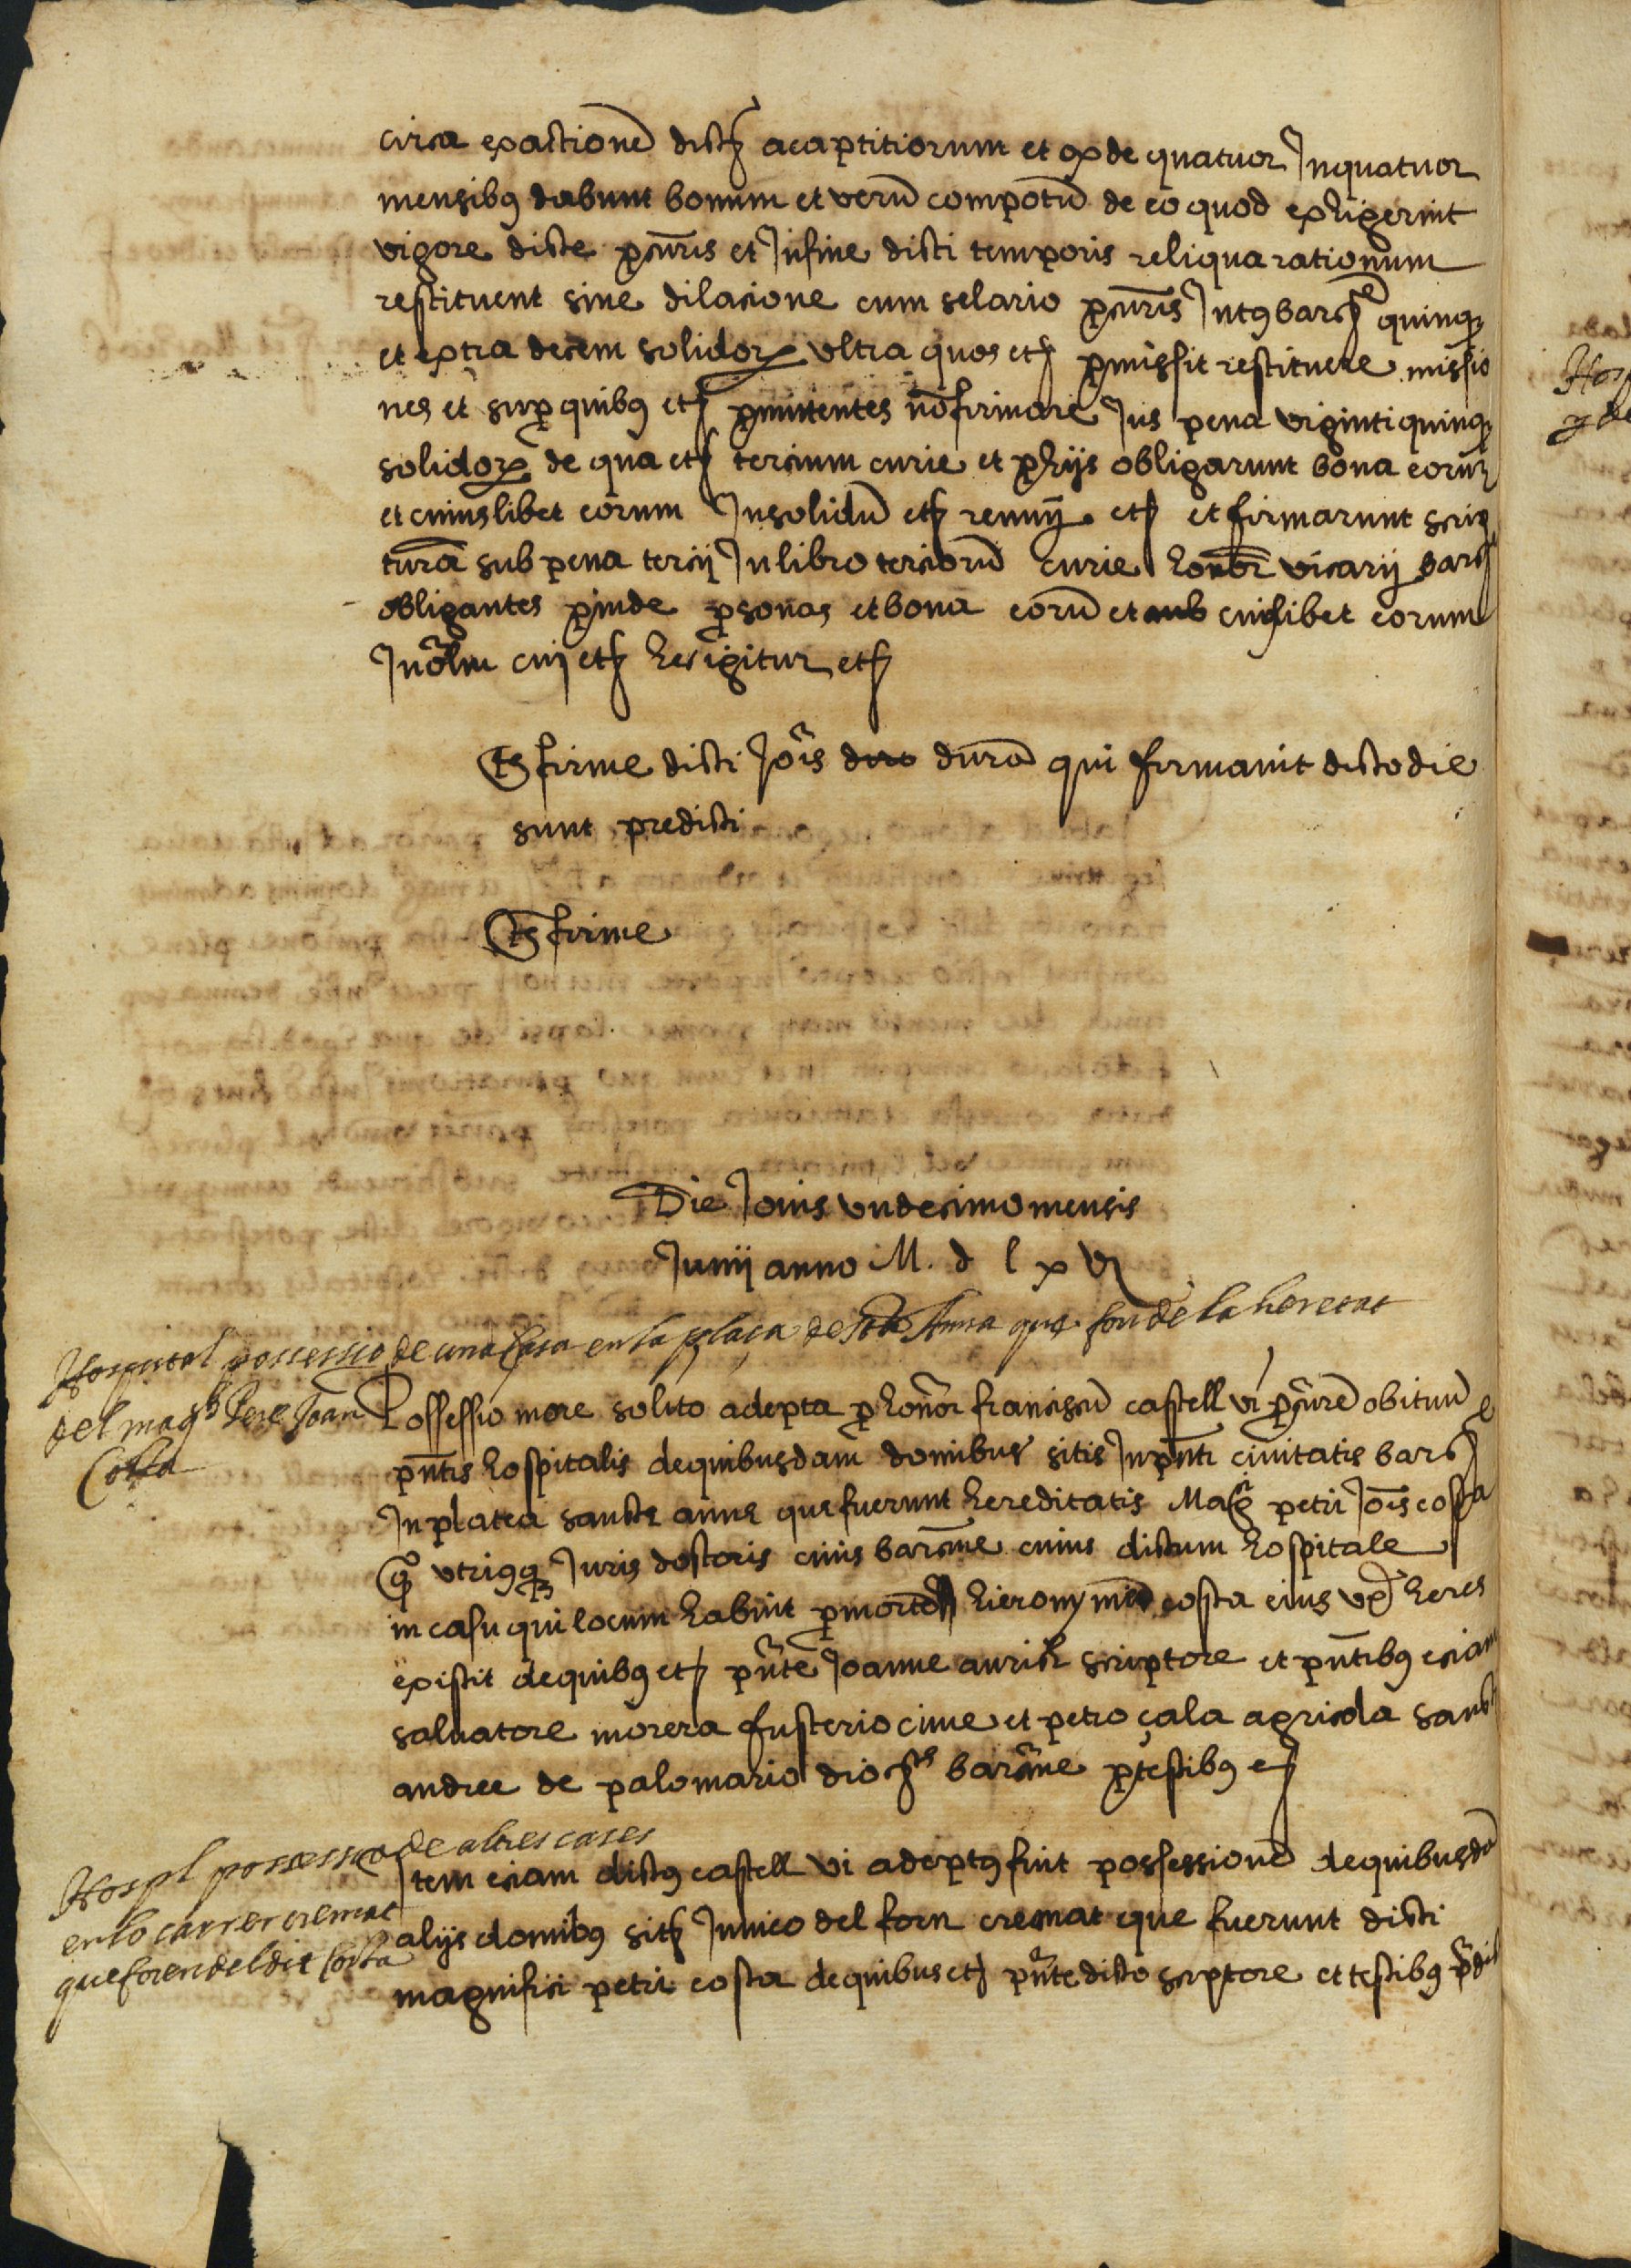 circa exactione dictʒ acaptitiorum et q̃ de quatuor Inquatuor
mensibꝯ dabunt bonum et verũ compotũ de eo quod exhigerint
vigore dicte ꝓcur̃is et Infine dicti temporis reliqua rationum
restituent sine dilacione cum selario ꝓcur̃is Intꝯ barcʒe quinqꝫ
et extra decem solidorꝫ vltra quos etʒ ꝓmissit restituere missio
nes et suꝑ quibꝯ etʒ ꝓmittentes nõ firmare Jus pena viginti quinqꝫ
solidorꝫ de qua etʒ tercium curie et ꝓ hijs obligarunt bona eorũ
et cuiuslibet eorum Insolidũ etʒ renũij etʒ et firmarunt scrip
turã sub pena tercij In libro terciorũ curie honor̃ vicarij barcʒe
obligantes ꝓinde ꝑsonas et bona eorũ et cuiꝯlibet eorum
Insolm cuij etʒ hec igitur etʒ
Ts̃ firme dicti Joãis durã qui firmauit dicto die
sunt predicti
Ts̃ firme
Die Jouis vndecimo mensis
Junij anno M. d l x vi
Hospital possessio de una Casa en la plaça de Sta Anna que fou de la heretat
del magᶜʰ Pere Joan
Costa
Possessio more solito adepta ꝑ honor̃ franciscũ castell vi ꝓcur̃e obituũ
pñtis hospitalis de quibusdam domibus sitis Inpñti ciuitatis barcʒe
Inplatea sancte anne que fuerunt hereditatis Magci petri Jois costa
q̃ vtriusqꝫ Juris doctoris ciuis barcñne cuius dictum hospitale
in casu qui locum habuit ꝑ mortẽ hieronymi costa eius heres
existit de quibꝯ etʒ pñte Joanne aurich scriptore et pñtibꝯ eciam
saluatore morera fusterio ciue et petro çala agricola sancti
andree de palomario diocʒis barcñne ꝓ testibꝯ eʒ
Hospl possessio de altres cases
en lo carrer cremat
que foren del dit Costa
Item eciam dictꝯ castell vi adeptꝯ fuit possessionẽ de quibusdã
alijs domibꝯ sitʒ Inuico del forn cremat que fuerunt dicti
magnifici petri costa de quibus etʒ pñte dicto scriptore et testibꝯ p̃dictis